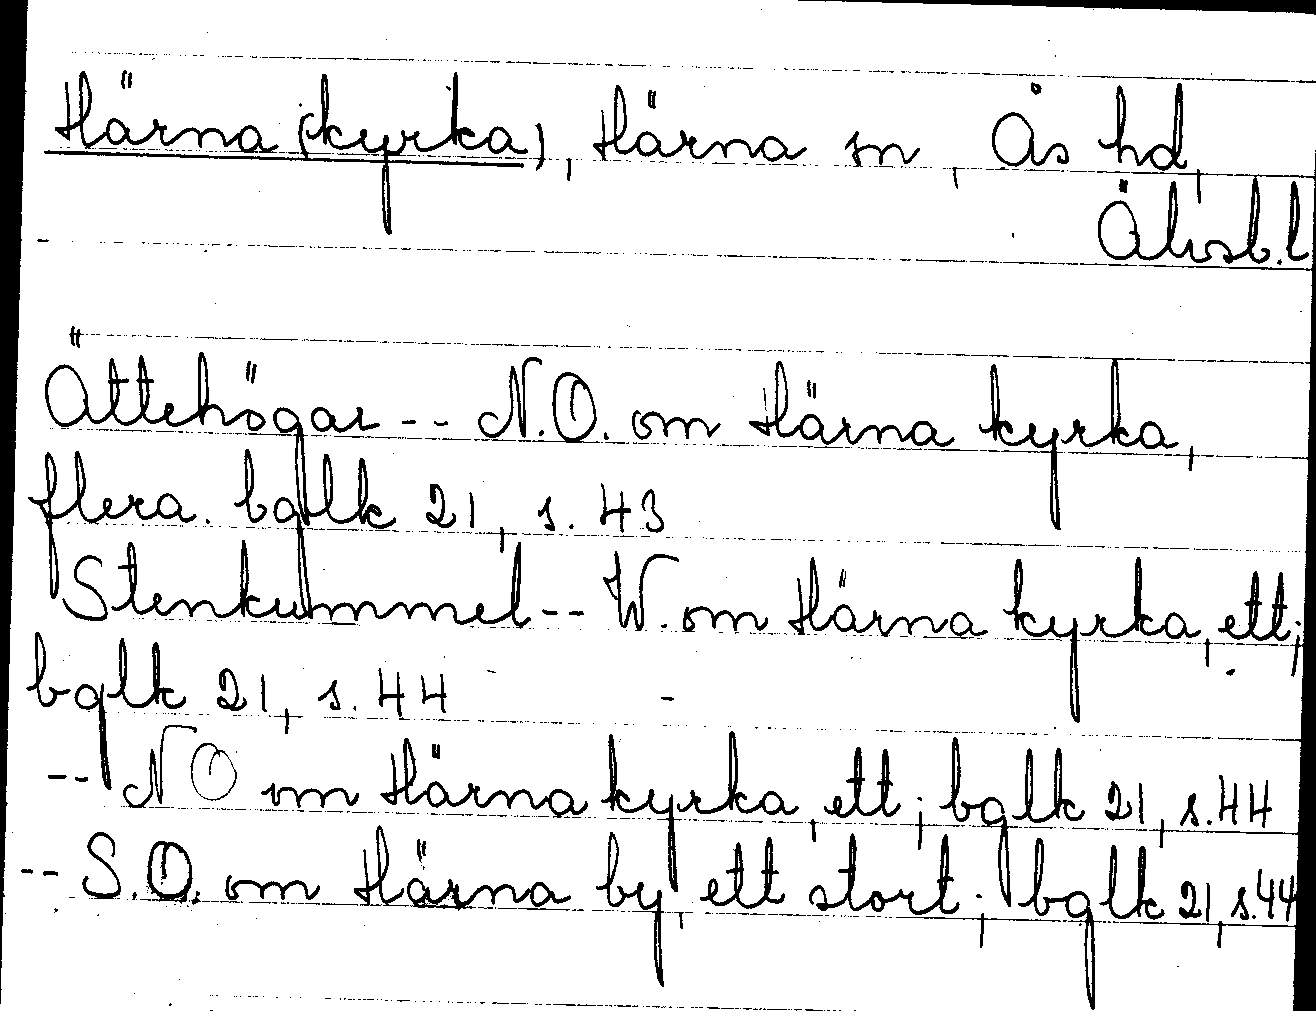 Härna (kyrka), Härna sn, Ås hd,
Älvsb.l
Ättehögar -- N.O. om Härna kyrka,
flera. bglk 21, s. 43
Stenkummel -- W. om Härna kyrka, ett;
bglk 21, s. 44
-- N O om Härna kyrka, ett; bglk 21, s.44
-- S.O. om Härna by, ett stort; bglk 21, s.44